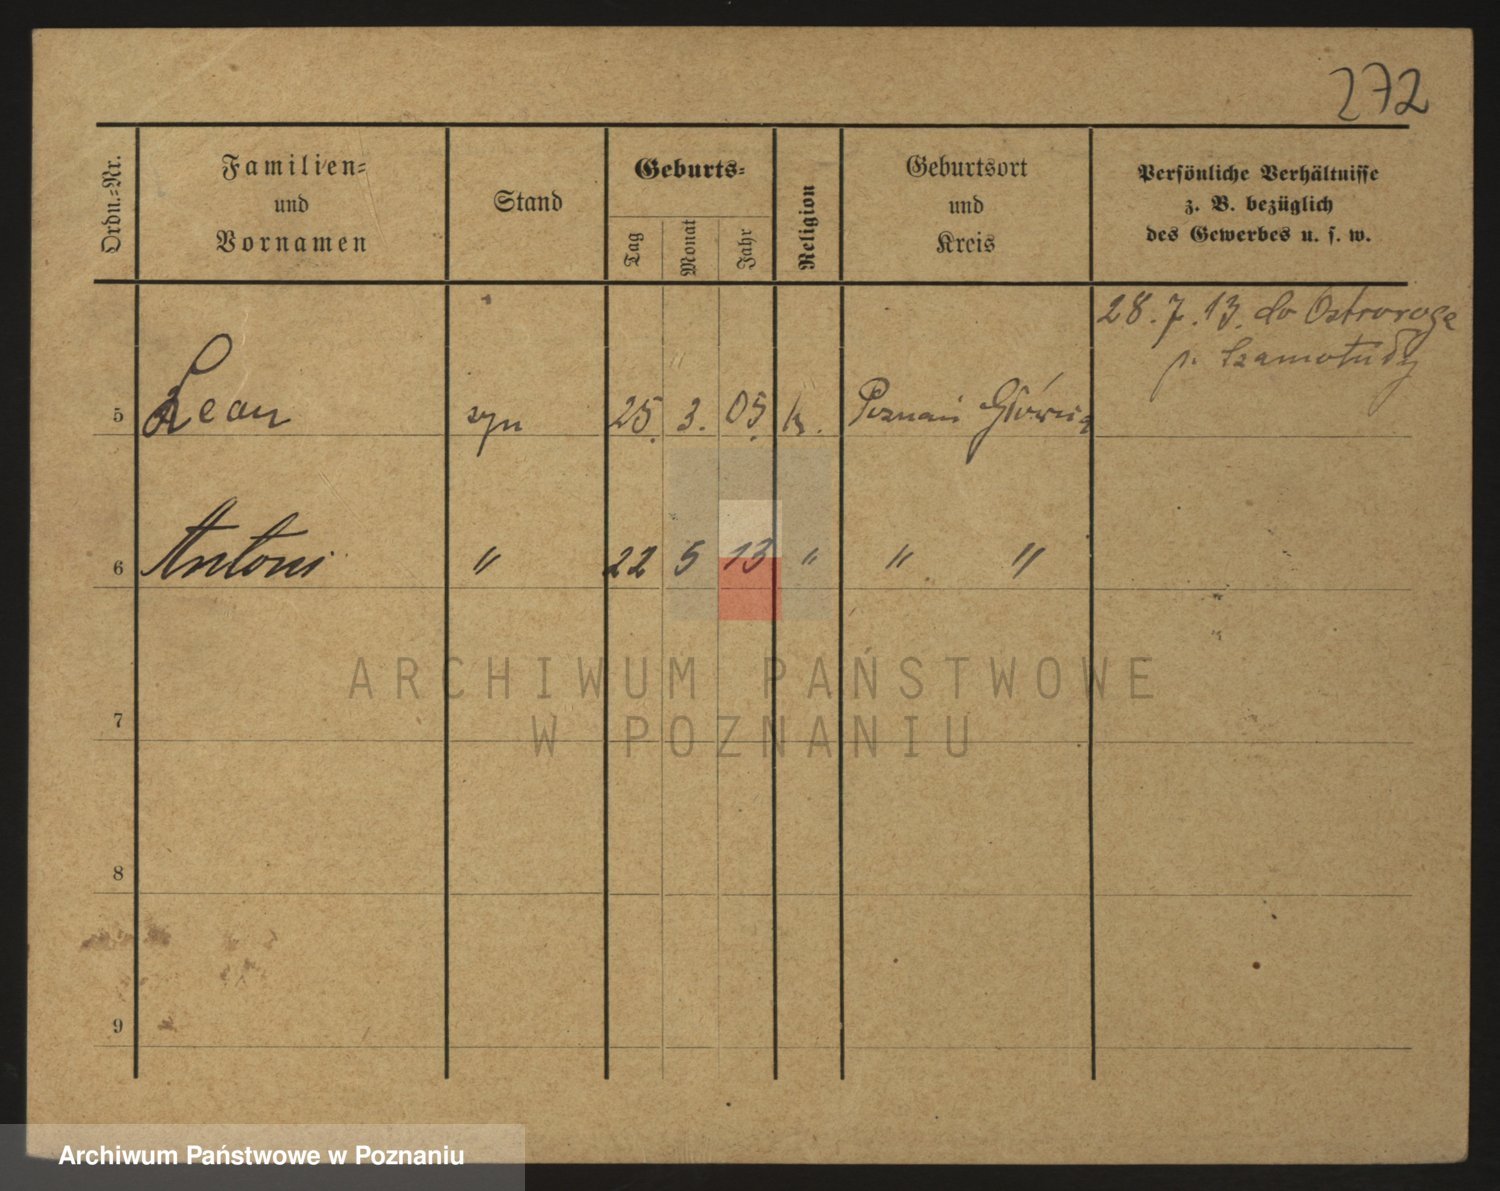 272
Ordn.-Nr.
Familien-
und
Vornamen
Stand
Geburts-
Tag
Monat
Jahr
Religion
Geburtsort
und
Kreis
Persönliche Verhältnisse
z. B. bezüglich
des Gewerbes u. s. w.
28.7.13. do Ostroroga
p. Szamotuły
5 Leon syn 25. 3. 05. k. Poznań Główna
6 Antoni " 22 5 13 " " "
ARCHIWUM PAŃSTWOWE
W POZNANIU
7
8
9
Archiwum Państwowe w Poznaniu